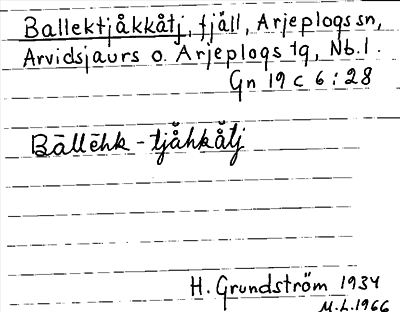 Ballektjåkkåtj, fjäll, Arjeplogs sn,
Arvidsjaurs o. Arjeplogs tg, Nb. l.
Gn 19 c 6 : 28
Bāllēhk - tjåhkåtj
H. Grundström 1934
M.L. 1966